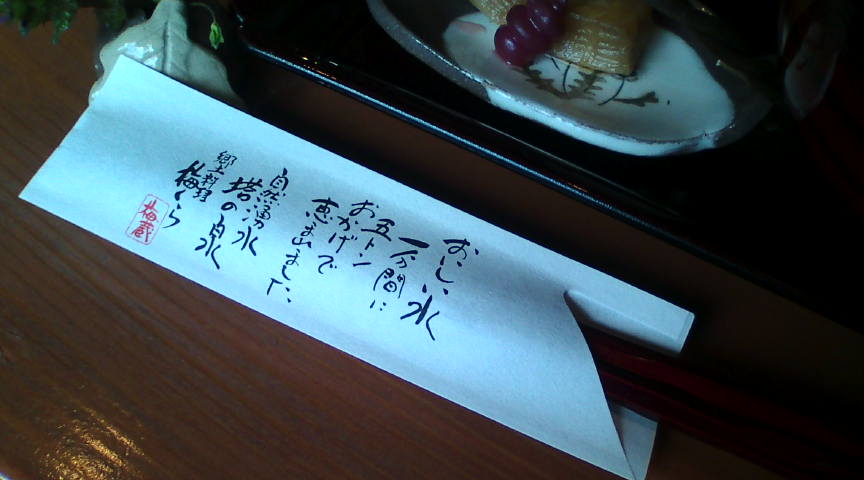 おいしい水
一分間に
五トン
おかげで
恵まれました
自然湧水
塔の泉水
郷土料理
梅くら
梅蔵